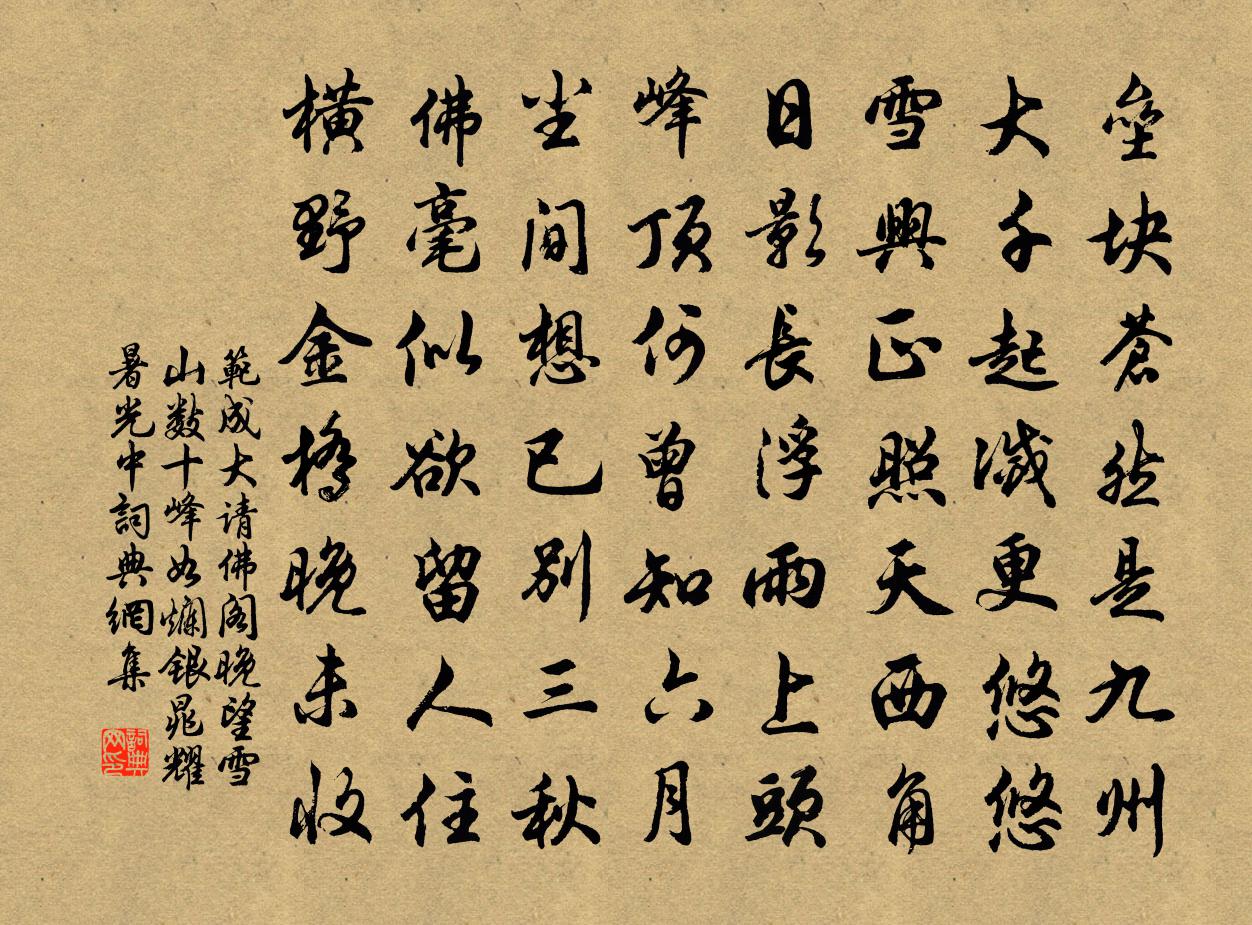 垒块苍然是九州
大千起灭更悠悠
雪兴正照天西角
日影长浮雨上头
峰顶何曾知六月
尘间想已别三秋
佛毫似欲留人住
横野金桥晚未收
範成大请佛阁晚望雪
山数十峰如烂银晃耀
暑光中詞典網集
詞典网印